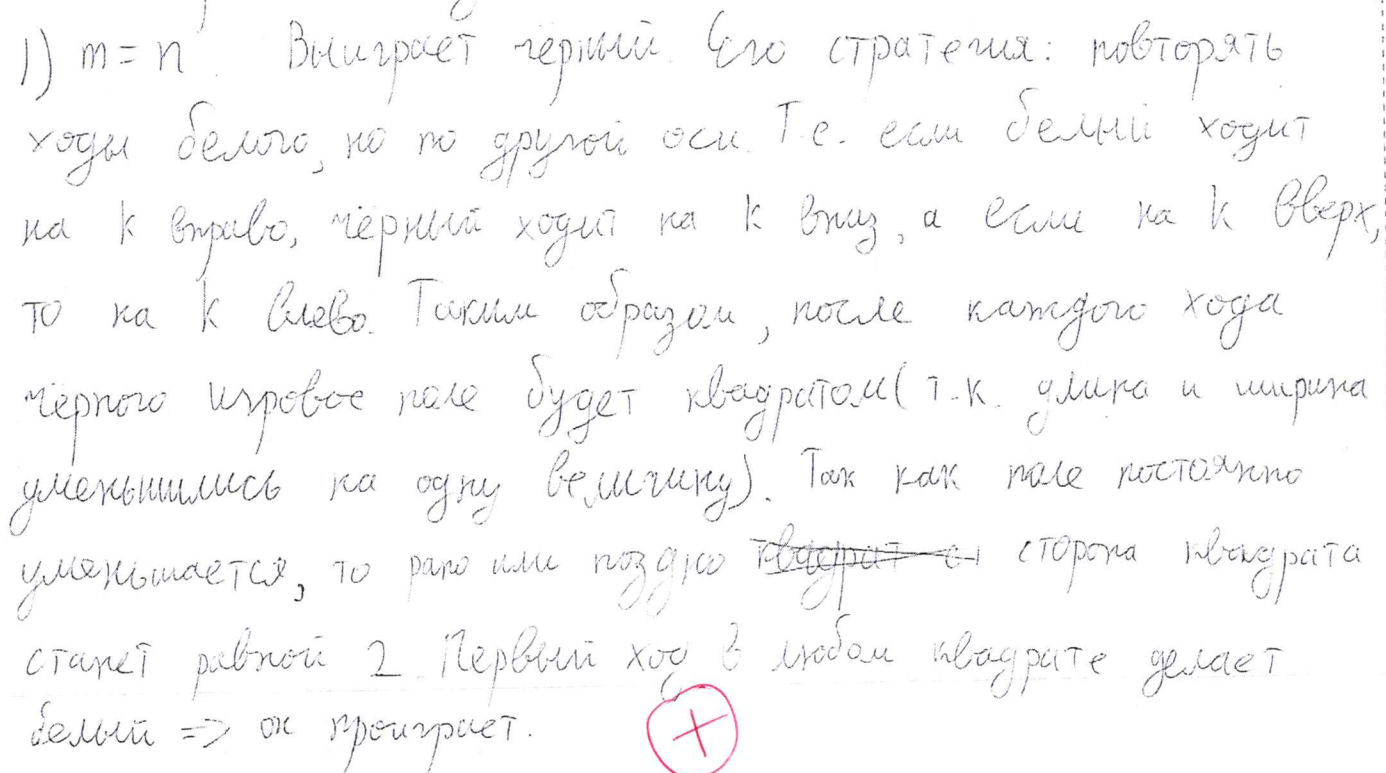 1) m = n. Выиграет чёрный. Его стратегия: повторять
ходы белого, но по другой оси. Т.е. если белый ходит
на k вправо, чёрный ходит на k вниз, а если на k вверх,
то на k влево. Таким образом, после каждого хода
чёрного игровое поле будет квадратом (т.к. длина и ширина
уменьшились на одну величину). Так как поле постоянно
уменьшается, то рано или поздно сторона квадрата
станет равной 2. Первый ход в любом квадрате делает
белый => он проиграет.
+